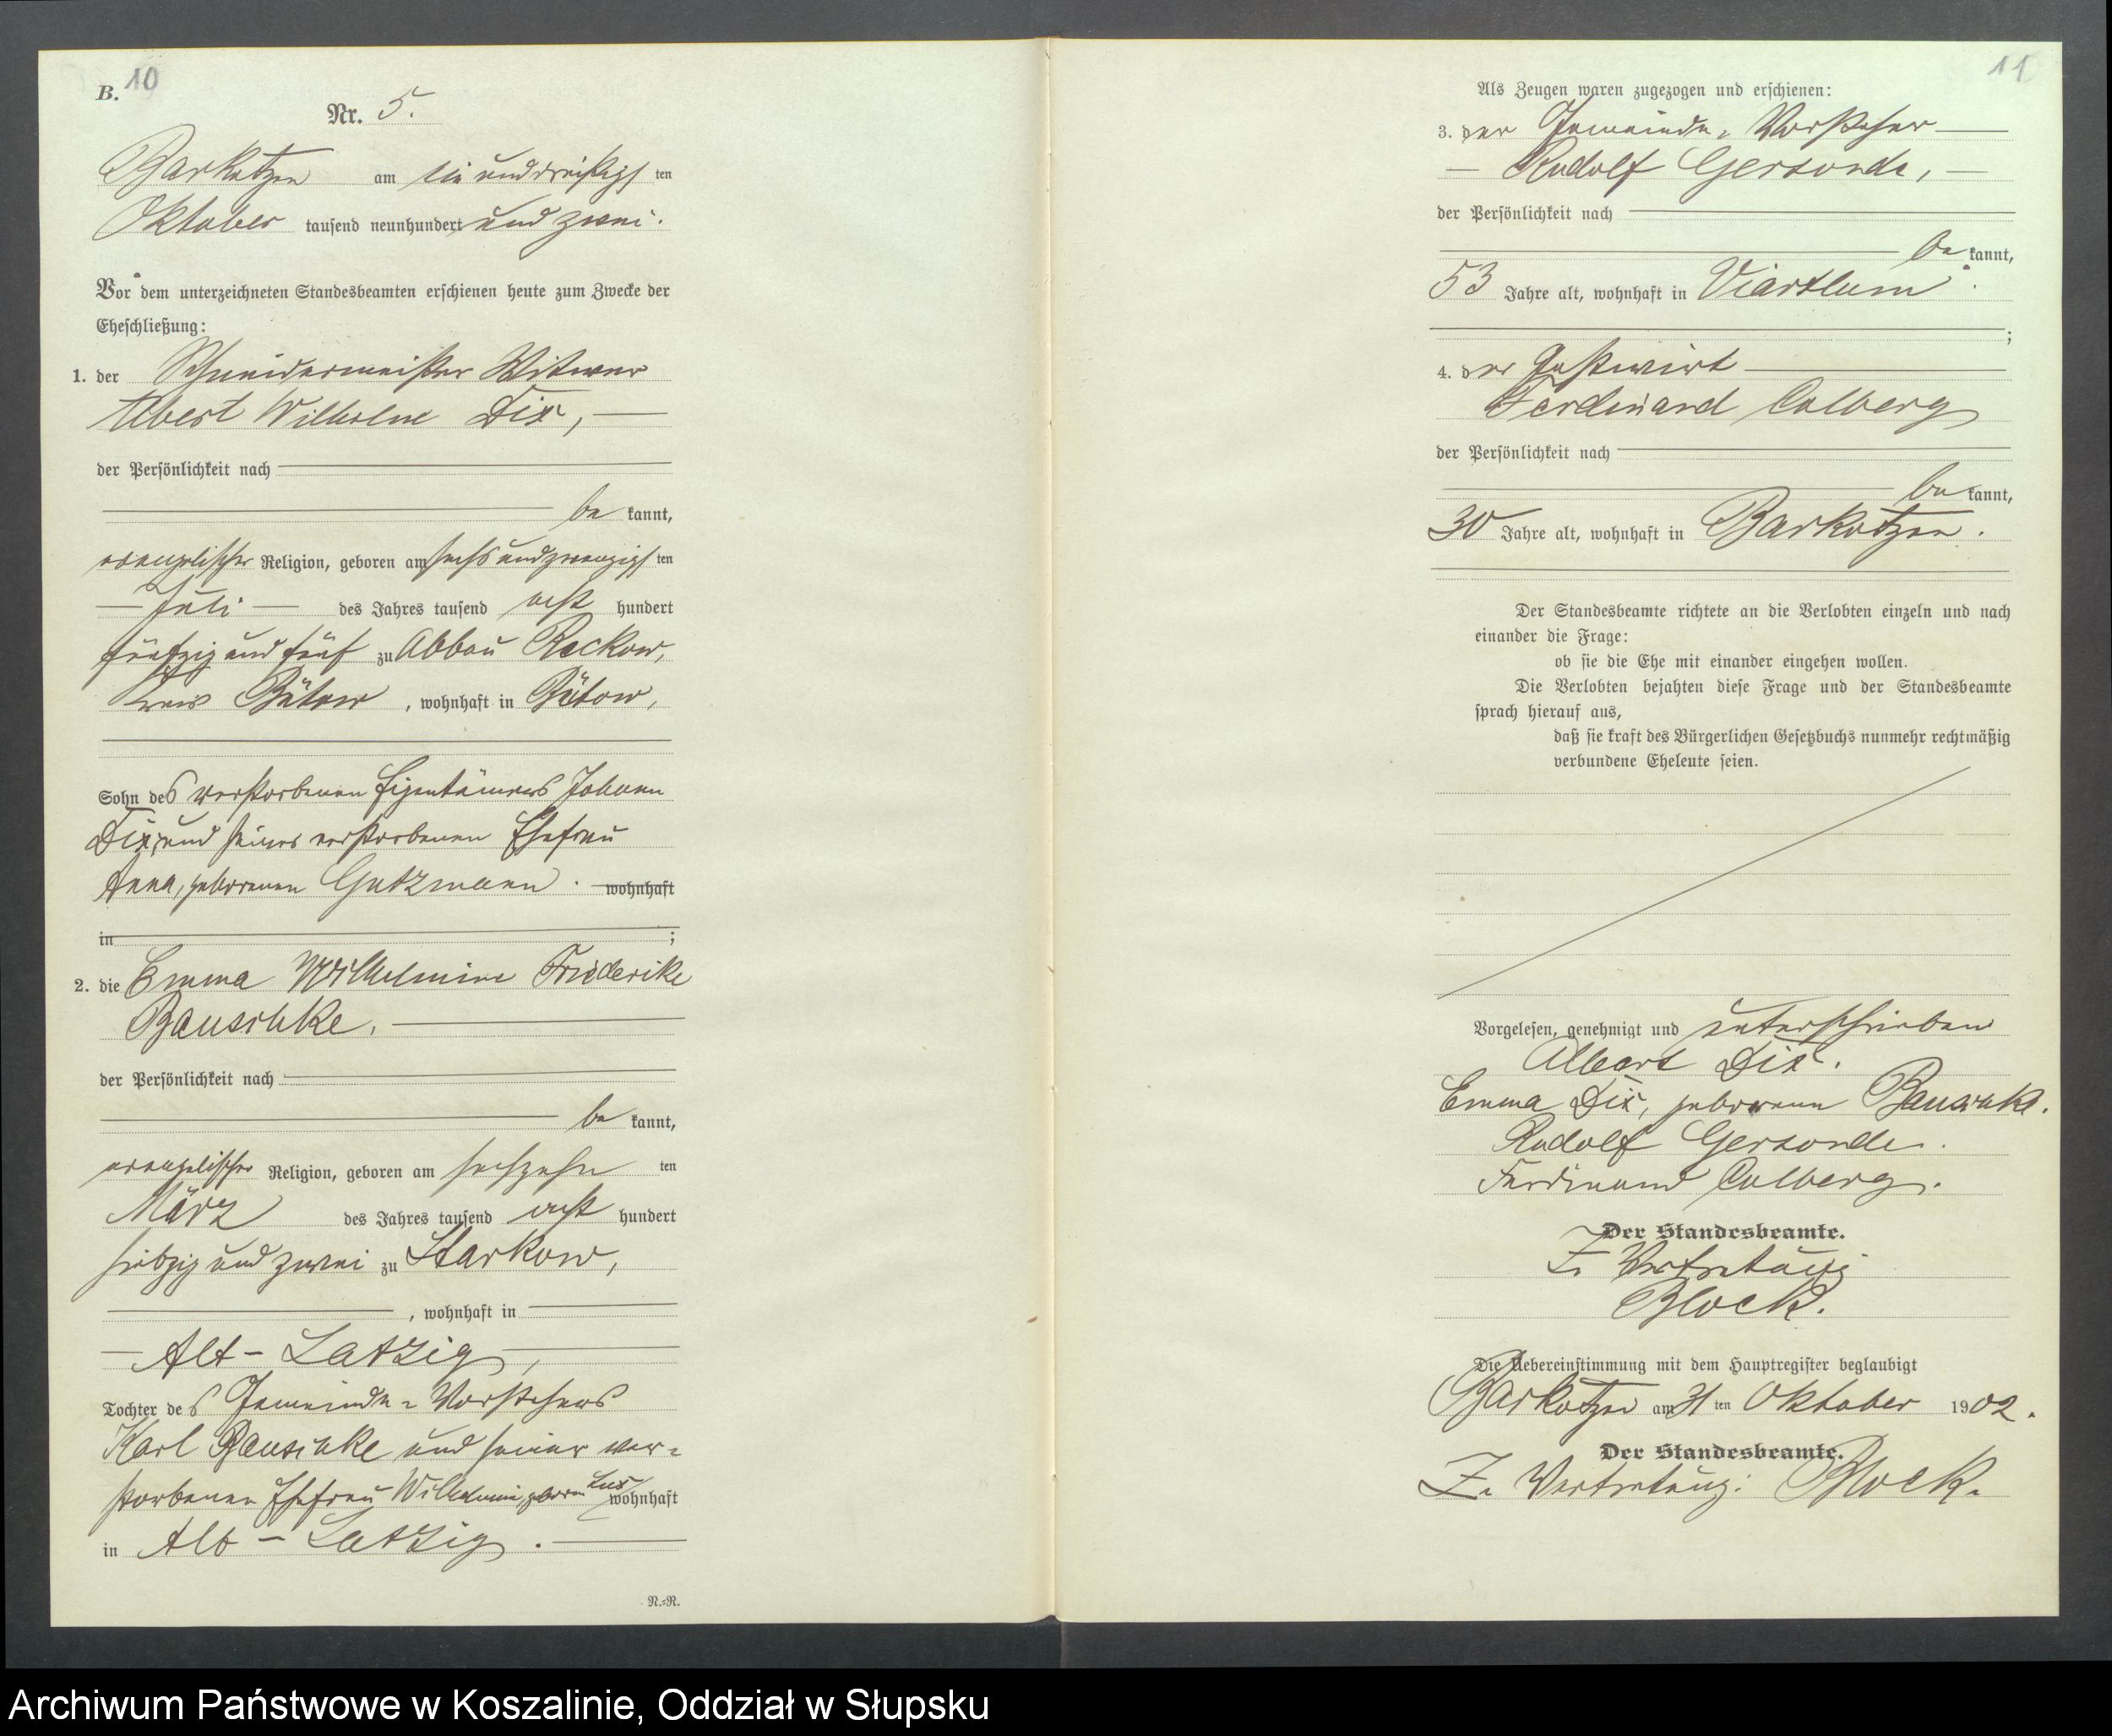 B. 10
Nr. 5.
Barkotzen am ein und dreißigsten
Oktober tausend neunhundert und zwei.
Vor dem unterzeichneten Standesbeamten erschienen heute zum Zwecke der
Eheschließung:
1. der Schneidermeister Witwer
Albert Wilhelm Dix,
der Persönlichkeit nach
be kannt,
evangelischer Religion, geboren am sechs und zwanzigsten
Juli des Jahres tausend acht hundert
fünfzig und fünf zu Abbau Reckow,
Kreis Bütow, wohnhaft in Bütow,
Sohn des verstorbenen Eigentümers Johann
Dix und seiner verstorbenen Ehefrau
Anna, geborenen Gutzmann. wohnhaft
in ;
2. die Emma Wilhelmine Friederike
Bauschke.
der Persönlichkeit nach
be kannt,
evangelischer Religion, geboren am sechszehn ten
März des Jahres tausend acht hundert
siebzig und zwei zu Starkow,
, wohnhaft in
Alt-Latzig,
Tochter des Gemeinde-Vorstehers
Karl Bauschke und seiner ver-
storbenen Ehefrau wohnhaft
in Alt-Latzig.
N.-N.
11
Als Zeugen waren zugezogen und erschienen:
3. der Gemeinde-Vorsteher
Rudolf Gersonde,
der Persönlichkeit nach
be kannt,
53 Jahre alt, wohnhaft in Viartlum.
;
4. der Gastwirt
Ferdinand Colberg
der Persönlichkeit nach
be kannt,
30 Jahre alt, wohnhaft in Barkotzen.
Der Standesbeamte richtete an die Verlobten einzeln und nach
einander die Frage:
ob sie die Ehe mit einander eingehen wollen.
Die Verlobten bejahten diese Frage und der Standesbeamte
sprach hierauf aus,
daß sie kraft des Bürgerlichen Gesetzbuchs nunmehr rechtmäßig
verbundene Eheleute seien.
Vorgelesen, genehmigt und unterschrieben
Albert Dix.
Emma Dix, geborene Bauschke.
Rudolf Gersonde.
Ferdinand Colberg.
Der Standesbeamte.
Z. Vertretung
Block.
Die Uebereinstimmung mit dem Hauptregister beglaubigt
Barkotzen am 31 ten Oktober 1902.
Der Standesbeamte.
Z. Vertretung: Block.
Archiwum Państwowe w Koszalinie, Oddział w Słupsku